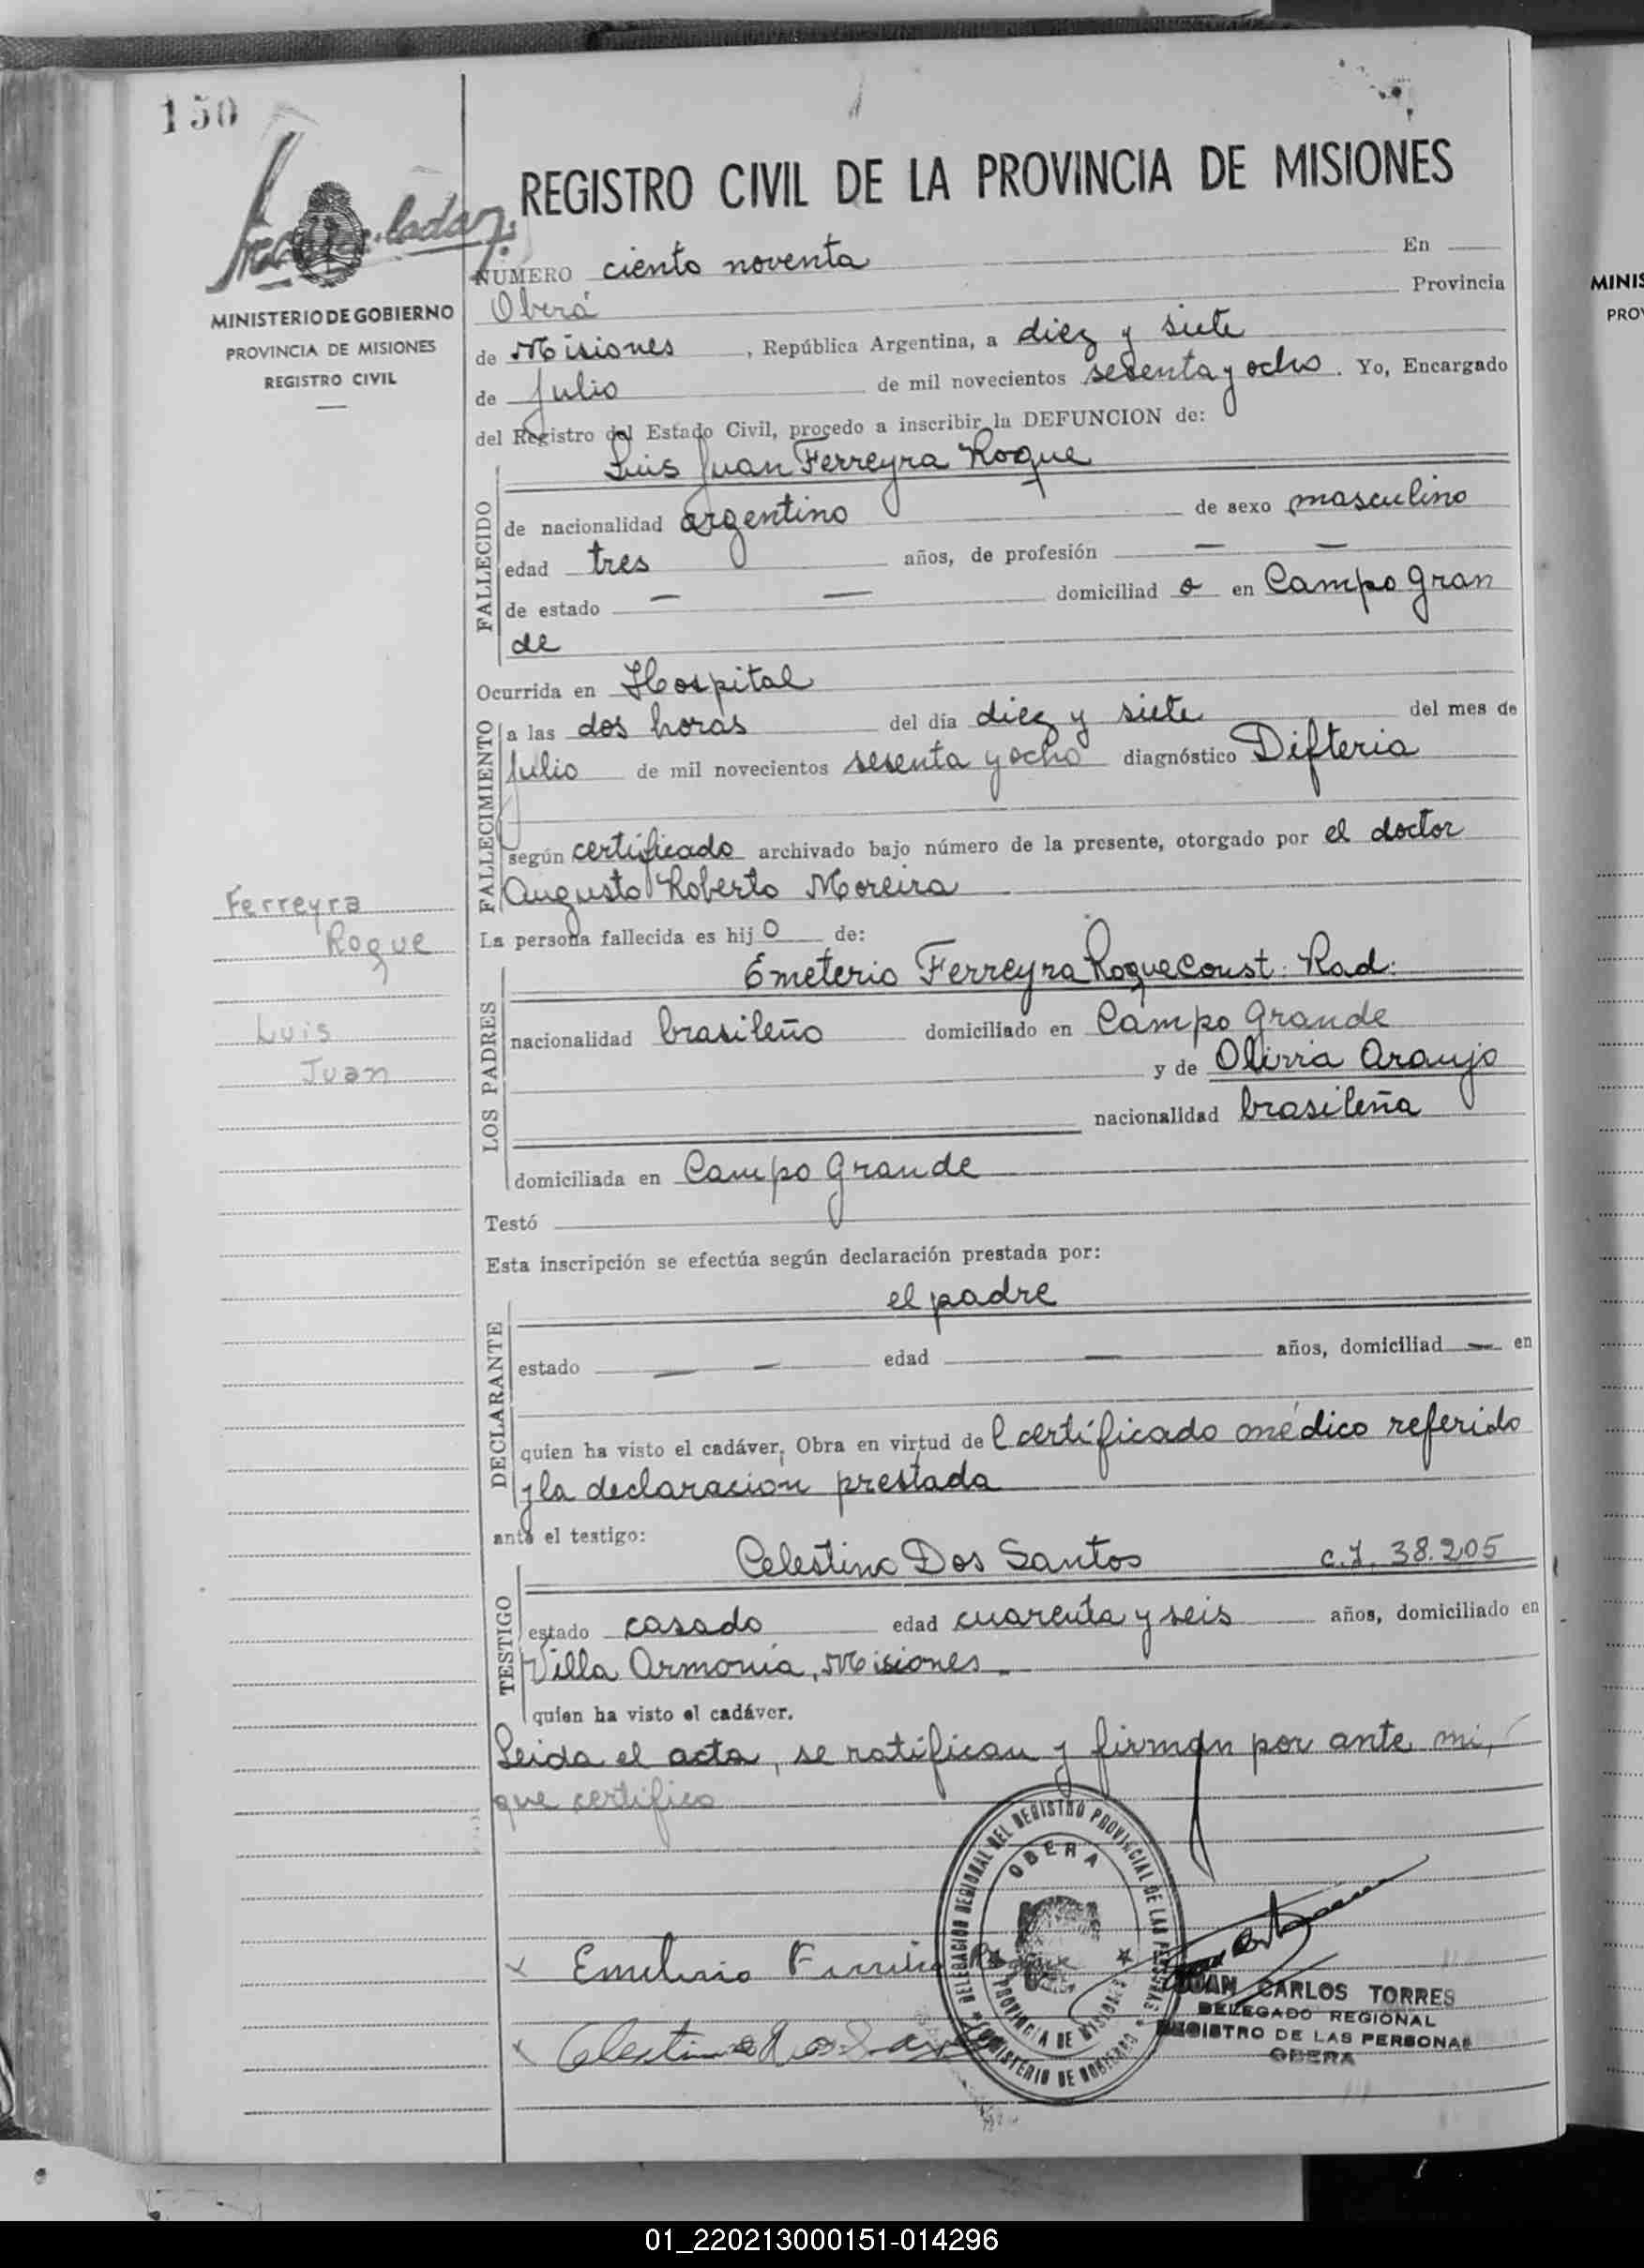 150
REGISTRO CIVIL DE LA PROVINCIA DE MISIONES
MINISTERIO DE GOBIERNO
PROVINCIA DE MISIONES
REGISTRO CIVIL
NUMERO ciento noventa En
Oberá Provincia
de Misiones, República Argentina, a diez y siete
de Julio de mil novecientos sesenta y ocho. Yo, Encargado
del Registro del Estado Civil, procedo a inscribir la DEFUNCION de:
Luis Juan Ferreyra Roque
FALLECIDO
de nacionalidad argentino de sexo masculino
edad tres años, de profesión — —
de estado — — domiciliad o en Campo Gran
de
Ocurrida en Hospital
FALLECIMIENTO
a las dos horas del día diez y siete del mes de
Julio de mil novecientos sesenta y ocho diagnóstico Difteria
según certificado archivado bajo número de la presente, otorgado por el doctor
Augusto Roberto Moreira
Ferreyra
Roque
Luis
Juan
La persona fallecida es hij o de:
LOS PADRES
Emeterio Ferreyra Roque Const. Rad.
nacionalidad brasileño domiciliado en Campo Grande
y de Olivia Araujo
nacionalidad brasileña
domiciliada en Campo Grande
Testó
Esta inscripción se efectúa según declaración prestada por:
el padre
DECLARANTE
estado — — edad — años, domiciliad — en
quien ha visto el cadáver, Obra en virtud de l certificado médico referido
y la declaración prestada
ante el testigo:
Celestino Dos Santos c.I. 38.205
TESTIGO
estado casado edad cuarenta y seis años, domiciliado en
Villa Armonia, Misiones.
quien ha visto el cadáver.
Leida el acta, se ratifican y firman por ante mi,
que certifico
DELEGACION REGIONAL DEL REGISTRO PROVINCIAL DE LAS PERSONAS
OBERA
PROVINCIA DE MISIONES
MINISTERIO DE GOBIERNO
JUAN CARLOS TORRES
DELEGADO REGIONAL
REGISTRO DE LAS PERSONAS
OBERA
MINIS
PRO
01_220213000151-014296